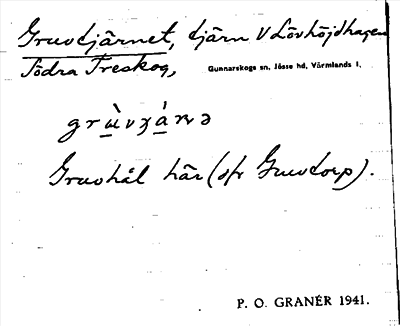 Gruvtjärnet, tjärn V Lövhöjdhagen
Södra Treskog,
Gunnarskogs sn, Jösse hd, Värmlands l.
grɯ̀vȝánə
Gruvhål här (jfr Gruvtorp).
P. O. GRANÉR 1941.